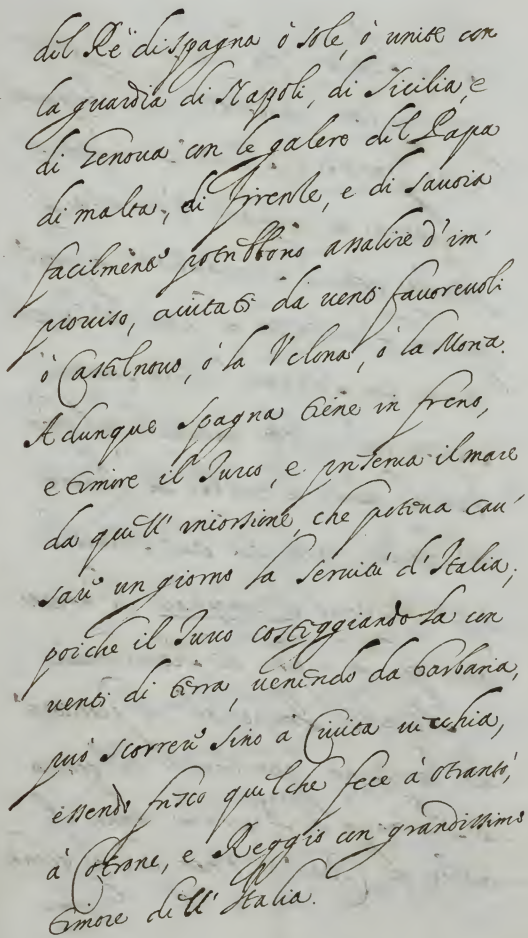 del Rè di spagna ò sole, ò unite con
la guardia di Napoli, di Sicilia, e
di Genoua con le galere del Papa
di malta, di firenze, e di sauoia
facilmente potrebbono assalire d'im'
prouiso, aiutati da uenti fauoreuoli
ò Castelnouo, ò la Velona, ò la Morea.
Adunque spagna tiene in freno,
e timore il Turco, e preserua il mare
da quell' incorsione, che poteua cau'
sare un giorno la seruitù d'Italia;
poiche il Turco costeggiandola con
uenti di terra, uenendo da barbaria,
può scorrere sino à Ciuita uecchia,
essendo fresco quel che fece à otranto,
à Cotrone, e Reggio con grandissimo
timore dell' Italia.